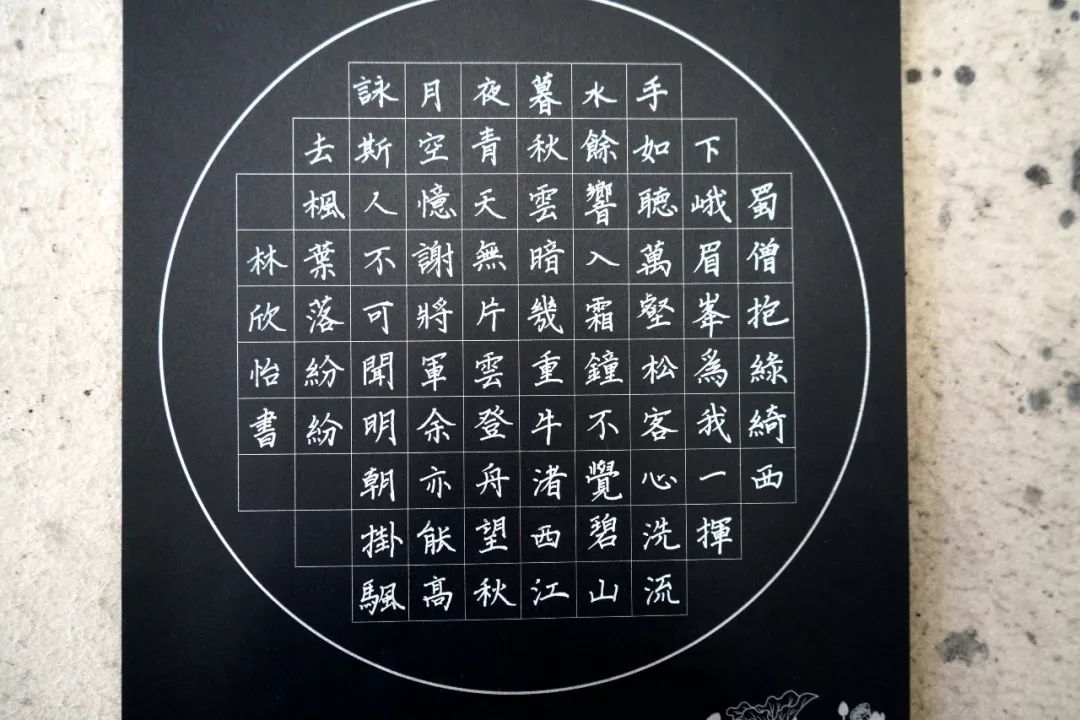 蜀僧抱綠綺西
下峨眉峯爲我一揮
手如聽萬壑松客心洗流
水餘響入霜鐘不覺碧山
暮秋雲暗幾重牛渚西江
夜青天無片雲登舟望秋
月空憶謝將軍余亦能高
詠斯人不可聞明朝掛颿
去楓葉落紛紛
林欣怡書